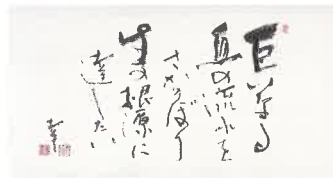 巨いなる
血の流れを
さかのぼり
生の根源に
達したい